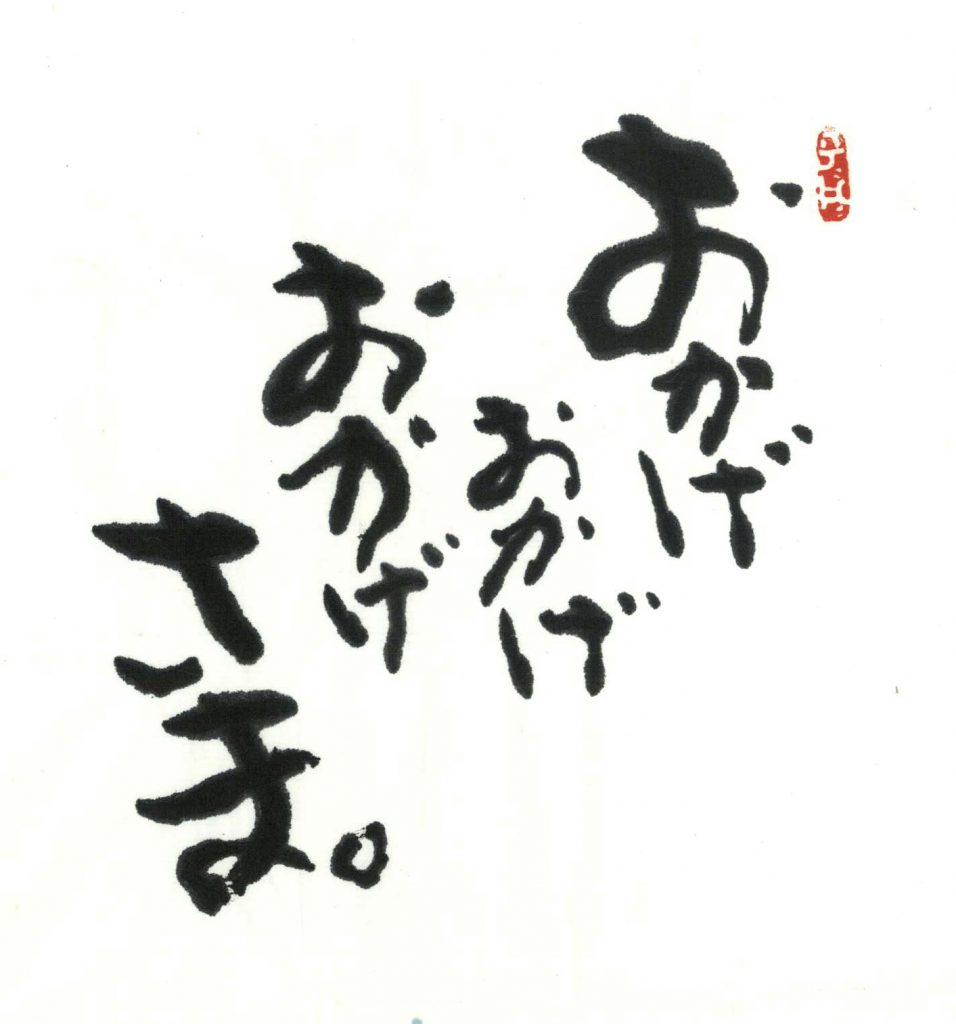 おかげ
おかげ
おかげ
さま。